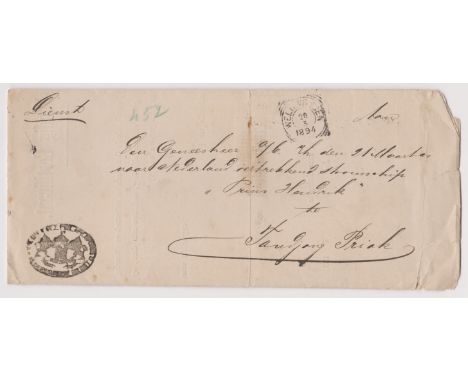 Dienst
452
WELTEVREDEN
20
3
1894
Aan
Den Geneesheer a/b v/h den 21 Maart as
naar Nederland vertrekkend stoomschip
"Prins Hendrik"
te
Tandjong Priok